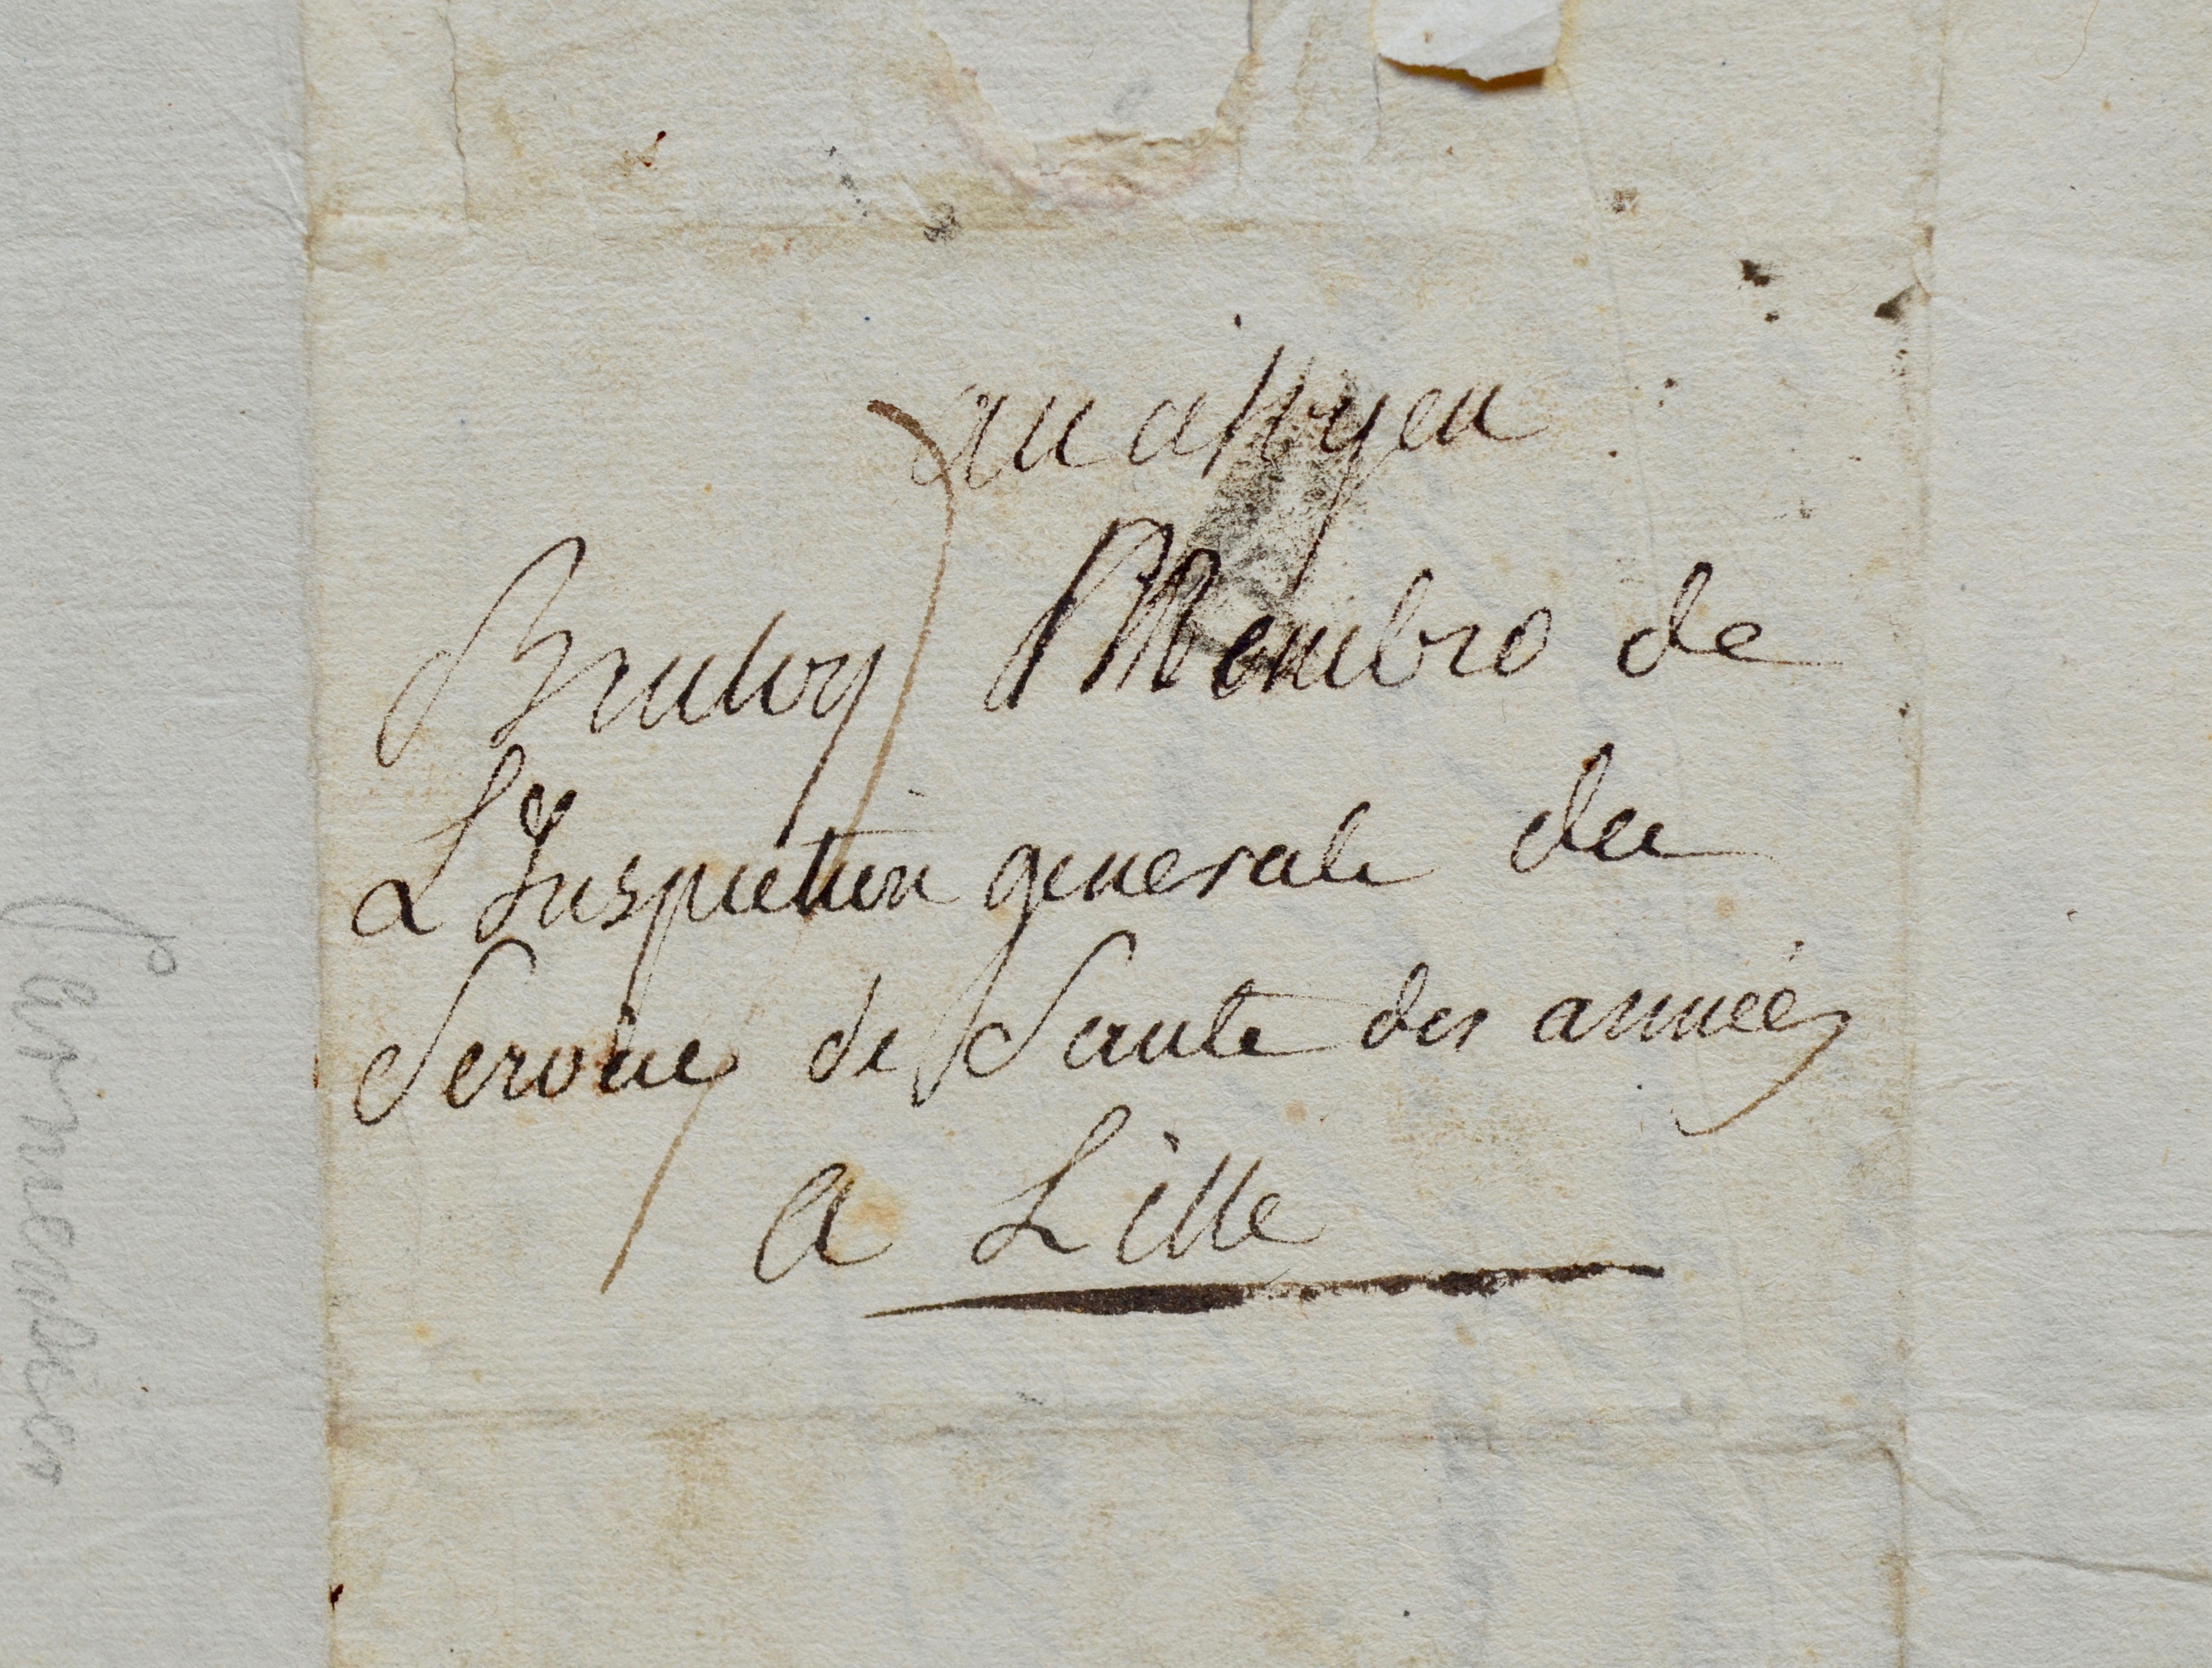 au citoyen
Bruloy Membre de
L'Inspection generale du
Service de Santé des armées
a Lille